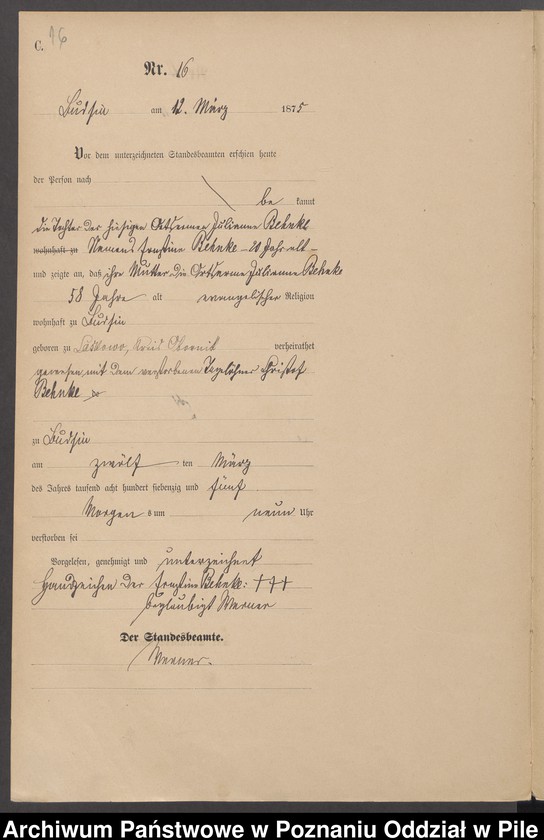 C. 16
Nr. 16
Budsin am 12. März 1875
Vor dem unterzeichneten Standesbeamten erschien heute
der Person nach
be kannt
die Tochter der hiesigen Ortsarmen Julianne Behnke
wohnhaft zu Namens Ernstine Behnke – 20 Jahr alt –
und zeigte an, daß ihre Mutter die Ortsarme Julianne Behnke
58 Jahre alt evangelischer Religion
wohnhaft zu Budsin
geboren zu Laskowo, Kreis Obornik verheirathet
gewesen mit dem verstorbenen Tagelöhner Christof
Behnke
zu Budsin
am zwölf ten März
des Jahres tausend acht hundert siebenzig und fünf
Morgen s um neun Uhr
verstorben sei
Vorgelesen, genehmigt und unterzeichnet
Handzeichen der Ernstine Behnke: †††
beglaubigt Werner
Der Standesbeamte.
Werner.
Archiwum Państwowe w Poznaniu Oddział w Pile